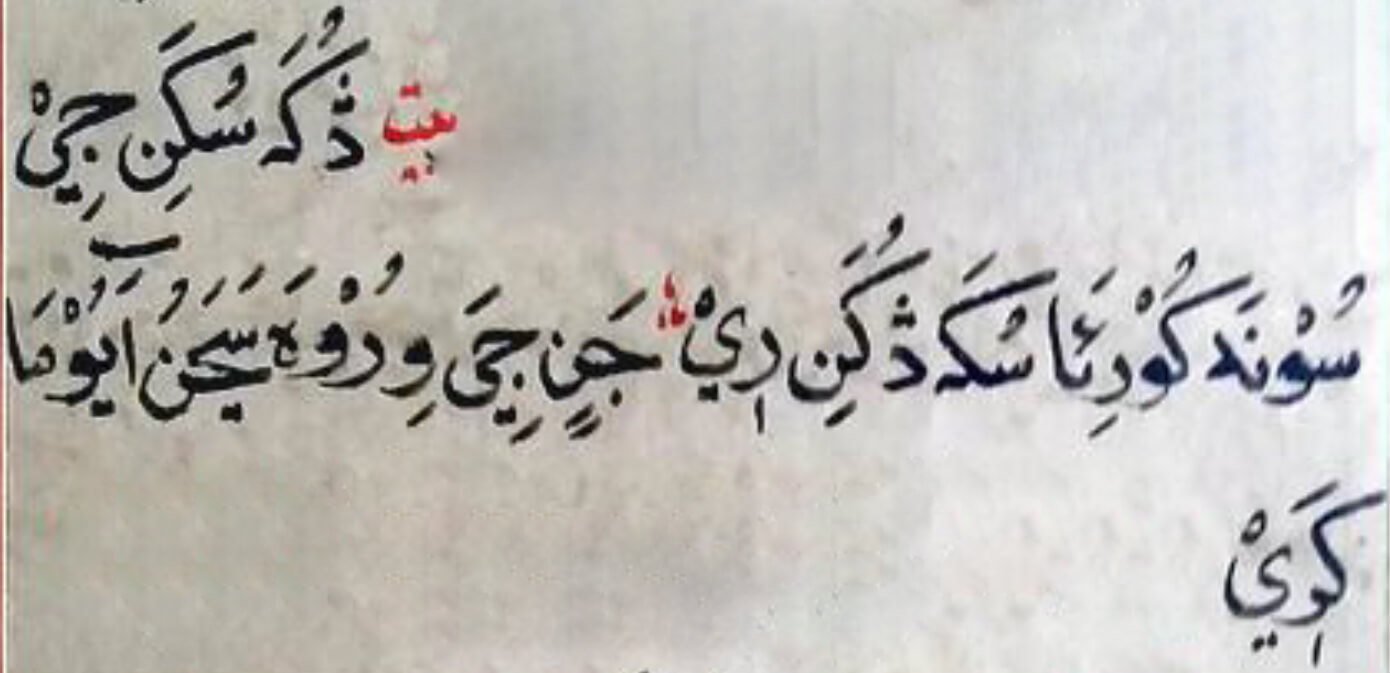 بيت ڎُکَہ سُکَنِ جِيْ
سُوْنَہ کُوْرِئَا سُکَہ ڎُکَنِ رٖيْ جَنٍ جِيَ وِرُوْہَ سَڃَنُ آيُوْمَا
کَرٖيْ